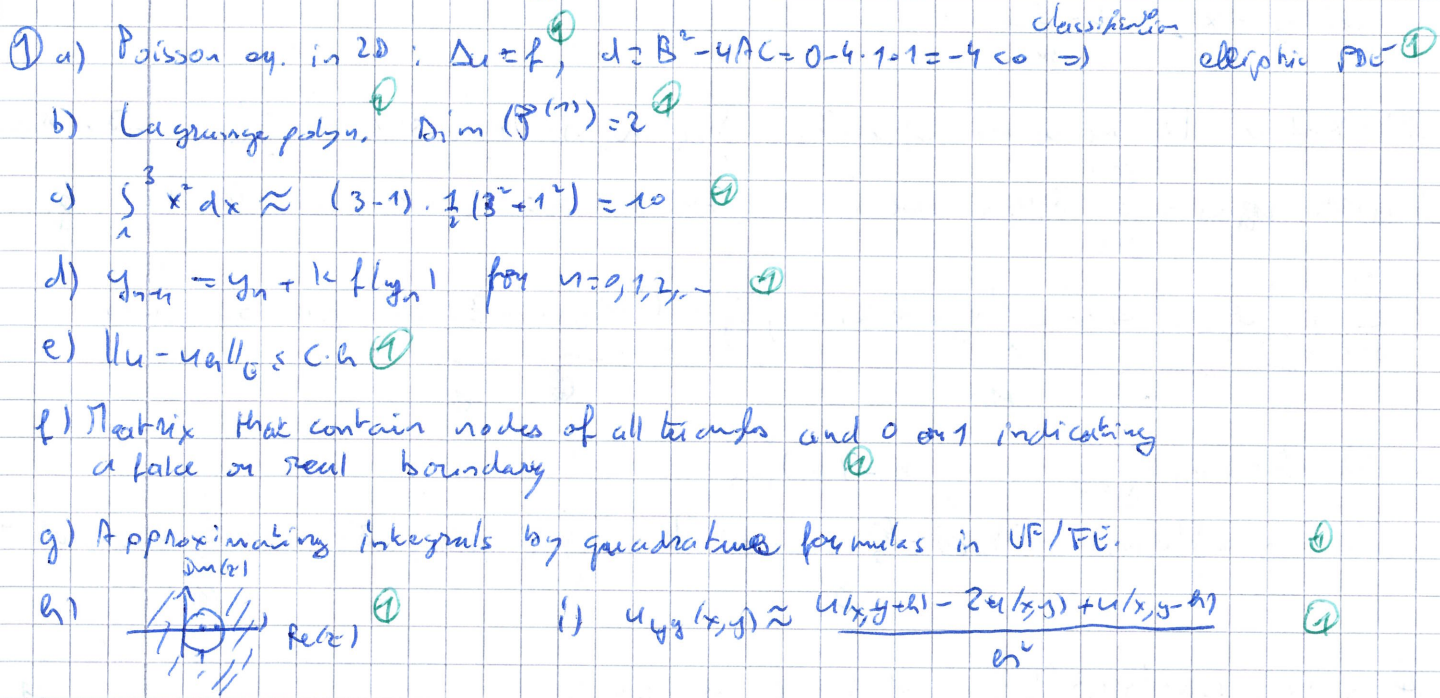 classification
① a) Poisson eq. in 2D : Δu = f, ① d = B² - 4AC = 0 - 4·1·1 = -4 < 0 ⇒ elliptic PDE ①
b) Lagrange polyn. ① Dim (P^(1)) = 2 ①
c) ∫₁³ x² dx ≈ (3-1) · 1/2 (3² + 1²) = 10 ①
d) y_{n+1} = y_n + k f(y_n) for n = 0, 1, 2, .. ①
e) ||u - u_h||_E ≤ C·h ①
f) Matrix that contain nodes of all and 0 or 1 indicating
a fake or real boundary ①
g) Approximating integrals by quadrature formulas in VF/FE. ①
Im(z)
h) Re(z) ① i) u_yy(x,y) ≈ (u(x,y+h) - 2u(x,y) + u(x,y-h)) / h² ①